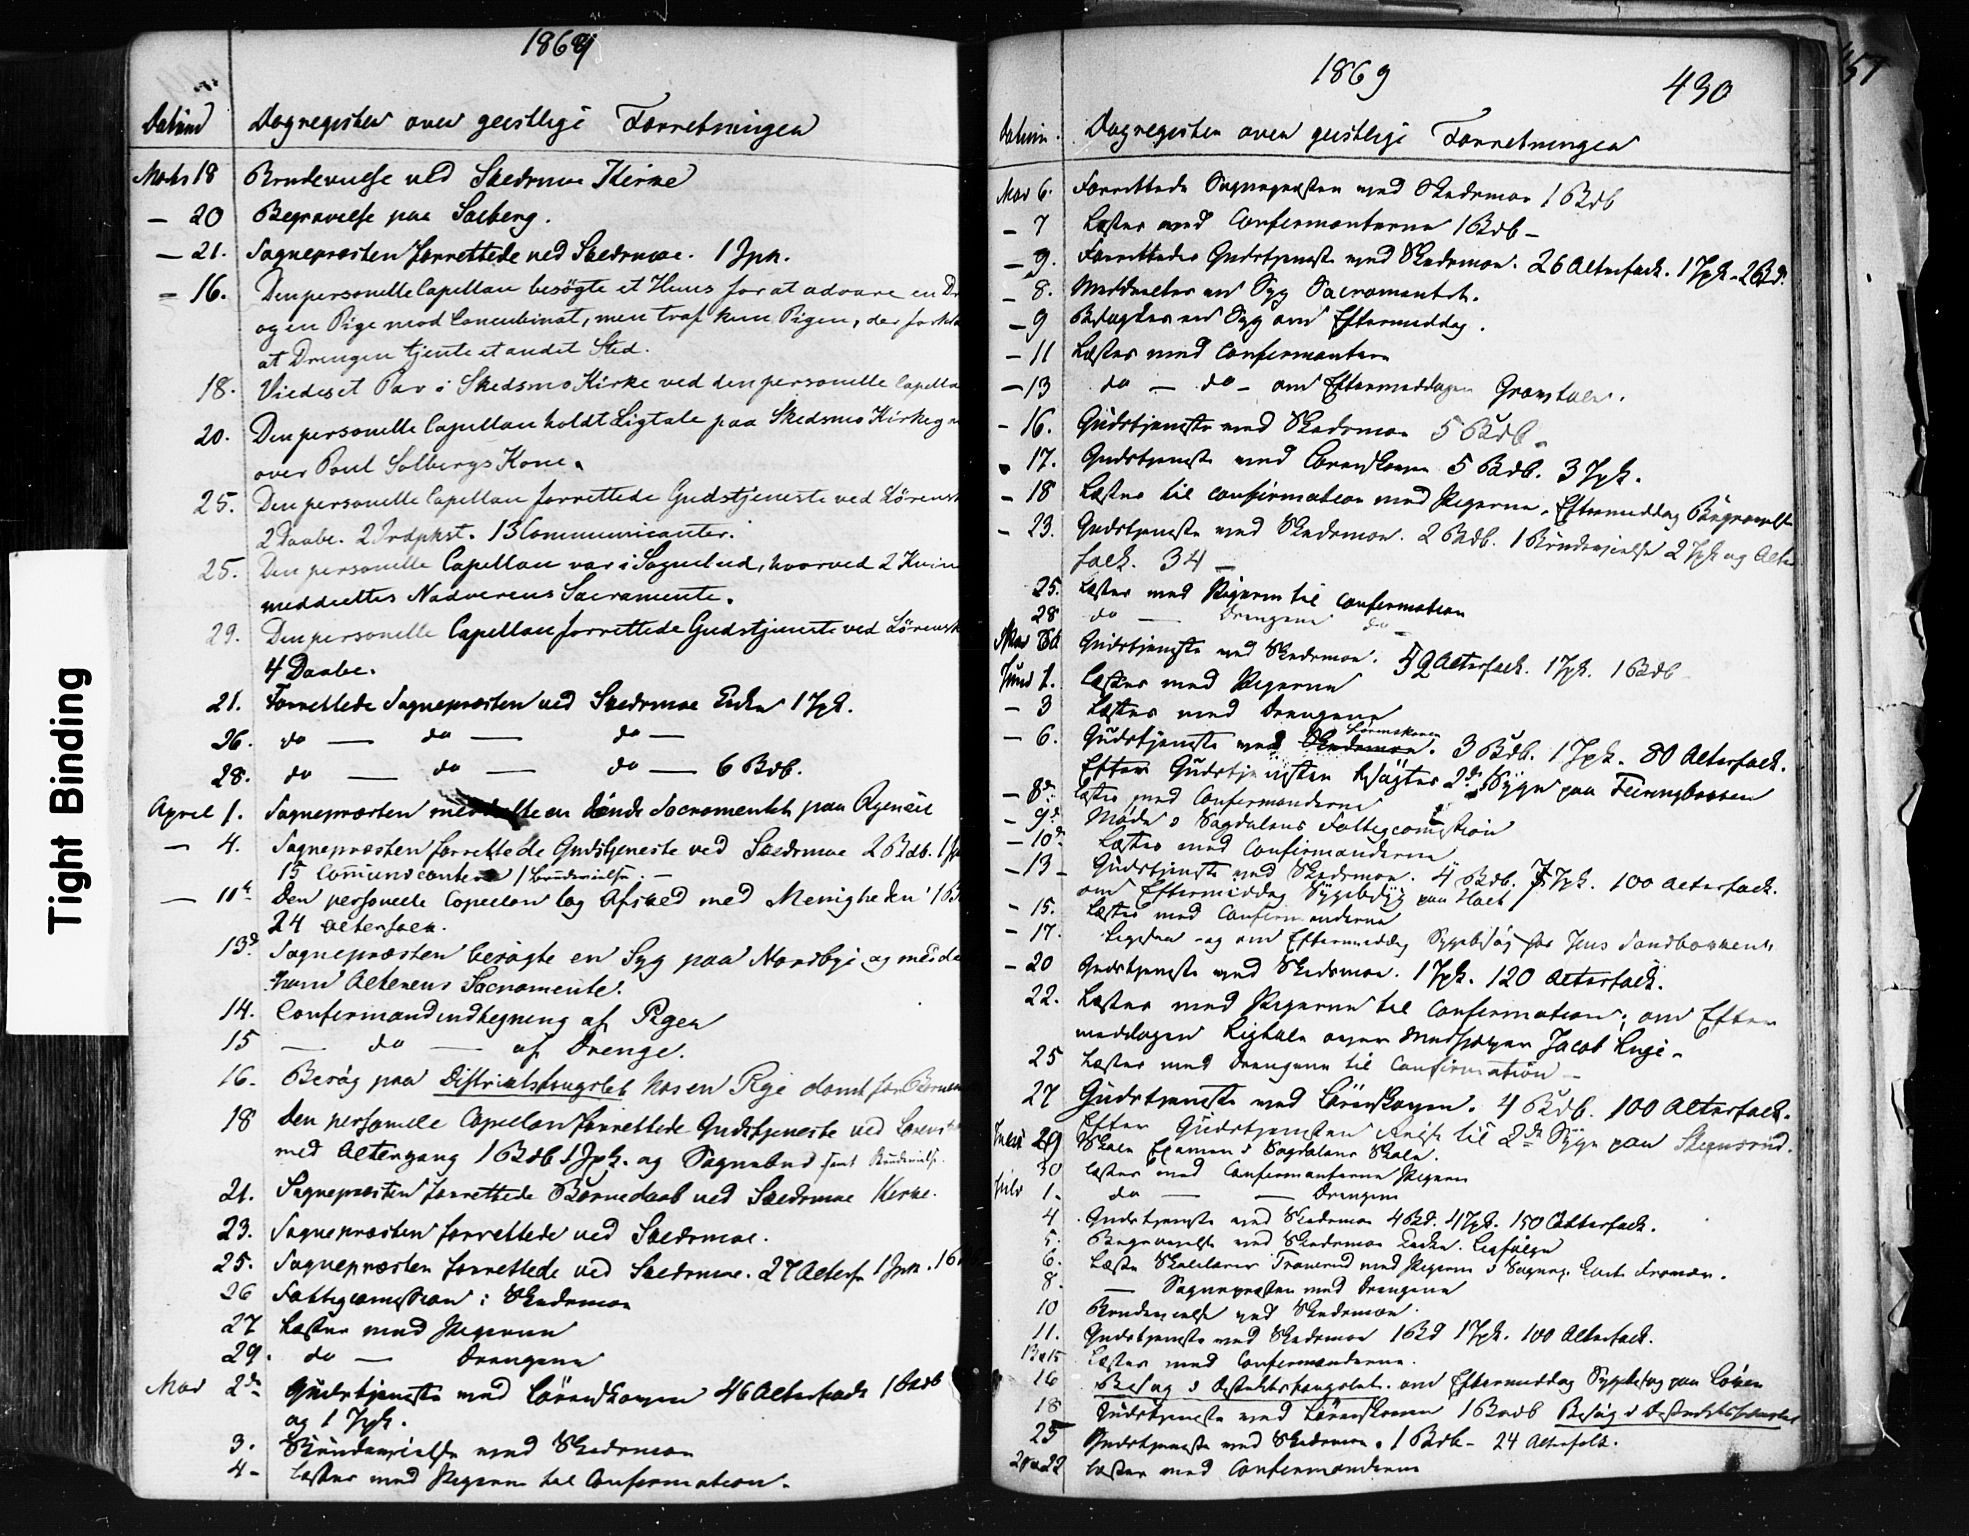 Tight Binding
1869
Datum
Dagregister over geistlige Forretninger
Marts 18 Brudevielse ved Skedsmoe Kirke
— 20 Begravelse paa Solberg.
— 21. Sognepræsten forrettede ved Skedsmoe. 1 Jpk.
— 16. Den personelle Capellan besögte et Huus for at advare en
og en Pige mod Concubinat, men traf kun Pigen, der
at Drengen tjente et andet Sted.
18. Viedes et Par i Skedsmo Kirke ved den personelle
20. Den personelle Capellan holdt Ligtale paa Skedsmo
over Poul Solbergs Kone.
25. Den personelle Capellan forrettede Gudstjeneste ved
2 Daabe. 2 Indpkst. 13 Communicanter.
25. Den personelle Capellan var i Sognebud, hvorved 2
meddeeltes Nadverens Sacramente.
29. Den personelle Capellan forrettede Gudstjeneste ved
4 Daabe.
21. Forrettede Sognepræsten ved Skedsmoe 1 Jpk.
26. do — do — do —
28. do — do — do — 6 Bdb.
April 1. Sognepræsten meddeelte en Sacramentet paa
— 4. Sognepræsten forrettede Gudstjeneste ved Skedsmoe 2 Bdb.
15 1 Brudevielse. —
— 11te Den personelle Capellan tog Afsked med Menigheden
24 Alterfolk.
13de Sognepræsten besøgte en Syg paa Nordbye og
ham Alterens Sacramente.
14. Confirmandindtegning af Piger
15 — do — af Drenge.
16. Besøg paa Distriktsfængslet hos en Pige
18 Den personelle Capellan forrettede Gudstjeneste ved
med Altergang 1 Bdb 1 Jpk. og Sognebud samt Brudevielse.
21. Sognepræsten forrettede Barnedaab ved Skedsmoe Kirke.
23. Sognepræsten forrettede ved Skedsmoe.
25. Sognepræsten forrettede ved Skedsmoe. 27 Alterf. 1 Jpk.
26 Fattigcomission i Skedsmoe
27 Læstes med Pigerne
29. do — Drengene
Mai 2den Gudstjeneste ved Lörenskogen 46 Alterfolk 1 Bdb
og 1 Jpk.
3. Brudevielse ved Skedsmoe
4 - Læstes med Pigerne til Confirmation.
1869
430
Datum. Dagregister over geistlige Forretninger
Mai 6. Forrettede Sognepræsten ved Skedsmoe 1 Bdb
— 7 Læstes med Confirmanterne 1 Bdb —
— 9. Forrettedes Gudstjeneste ved Skedsmoe. 26 Alterfolk. 1 Jpk. 2 Bd.
— 8. Meddeeltes en Syg Sacramentet.
— 9 Besøgtes en Syg om Eftermiddag.
— 11 Læstes med Confirmanter
— 13 do — do — om Eftermiddagen
— 16. Gudstjeneste ved Skedsmoe 5 Bdb.
17. Gudstjeneste ved Lorenskogen 5 Bdb. 3 Jpk.
— 18 Læstes til Confirmation med Pigerne. Eftermiddag Begravelse
— 23. Gudstjeneste ved Skedsmoe. 2 Bdb. 1 Brudevielse 2 Jpk og Alter
folk. 34 —
25. Læstes med Pigerne til Confirmation
28 do — Drengene do —
Mai Gudstjeneste ved Skedsmoe. Alterfolk. 1 Jpk. 1 Bdb
Juni 1. Læstes med Pigerne
— 3 Læstes med Drengene
— 6. Gudstjeneste ved Skedsmoe Lörenskogen. 3 Bdb. 1 Jpk. 80 Alterfolk.
Efter Gudstjenesten besøgtes 2de Syge paa
— 8de Læstes med Confirmanderne
— 9de Møde i Sagdalens Fattigcomission
— 10de Læstes med Confirmanderne
— 13 — Gudstjeneste ved Skedsmoe. 4 Bdb. Jpk. 100 Alterfolk.
om Eftermiddag Sygebesøg paa
— 15. Læstes med Confirmanderne
— 17. og om Eftermiddag Sygebesøg hos Jens
— 20 Gudstjeneste ved Skedsmoe. 1 Jpk. 120 Alterfolk.
22. Læstes med Pigerne til Confirmation; om Efter
meddagen Ligtale over Jacob
25 Læstes med Drengene til Confirmation —
27 Gudstjeneste ved Lörenskogen. 4 Bdb. 100 Alterfolk.
Efter Gudstjenesten Reise til 2de Syge paa
29 Skole Examen i Sagdalens Skole.
30 Læstes med Confirmanterne Pigerne
Juli 1. do — — Drengene
4 Gudstjeneste ved Skedsmoe 4 Bd. 4 Jpk. 150 Alterfolk.
5. Begravelse ved Skedsmoe
6. Læste Skolelærer med Pigerne i Sognep.
8. — Sognepræsten med Drengene
10 Brudevielse ved Skedsmoe.
11. Gudstjeneste ved Skedsmoe 1 Bd 1 Jpk. 100 Alterfolk.
13 & 15 Læstes med Confirmanderne.
16 Besøg i Distriktsfængslet. om Eftermiddag Sygebesøg paa
18 Gudstjeneste ved Lörenskogen 1 Bdb Besøg i
25 Gudstjeneste ved Skedsmoe. 1 Bdb — 24 Alterfolk.
Læstes med Confirmanderne